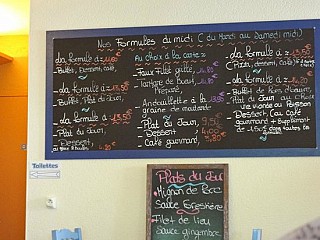 Nos Formules du midi (du Mardi au Samedi midi)
-La formule à
-Buffet, Dessert, café,
-La formule à 13,50
-Buffet, Plat du Jour,
-La formule à 13,50
-Plat du Jour,
-Dessert
Au choix à la carte :
-Faux Filet grillé,
-Tartare de Boeuf,
Préparé,
-Andouillette à la
graine de moutarde
-Plat 9,50
-Dessert 4,00
-Café gourmand, 5,80
-La formule à 13,50
(Pizza, dessert, café)
-La formule à
-Buffet de hors d'œuvre,
-Plat du Jour au choix
viande ou Poisson
-Dessert (au café
gourmand + Supplément
de 1,50€
Toilettes
Plats du Jour
Mignon de Porc
Sauce Forestière
Filet de lieu
Sauce gingembre